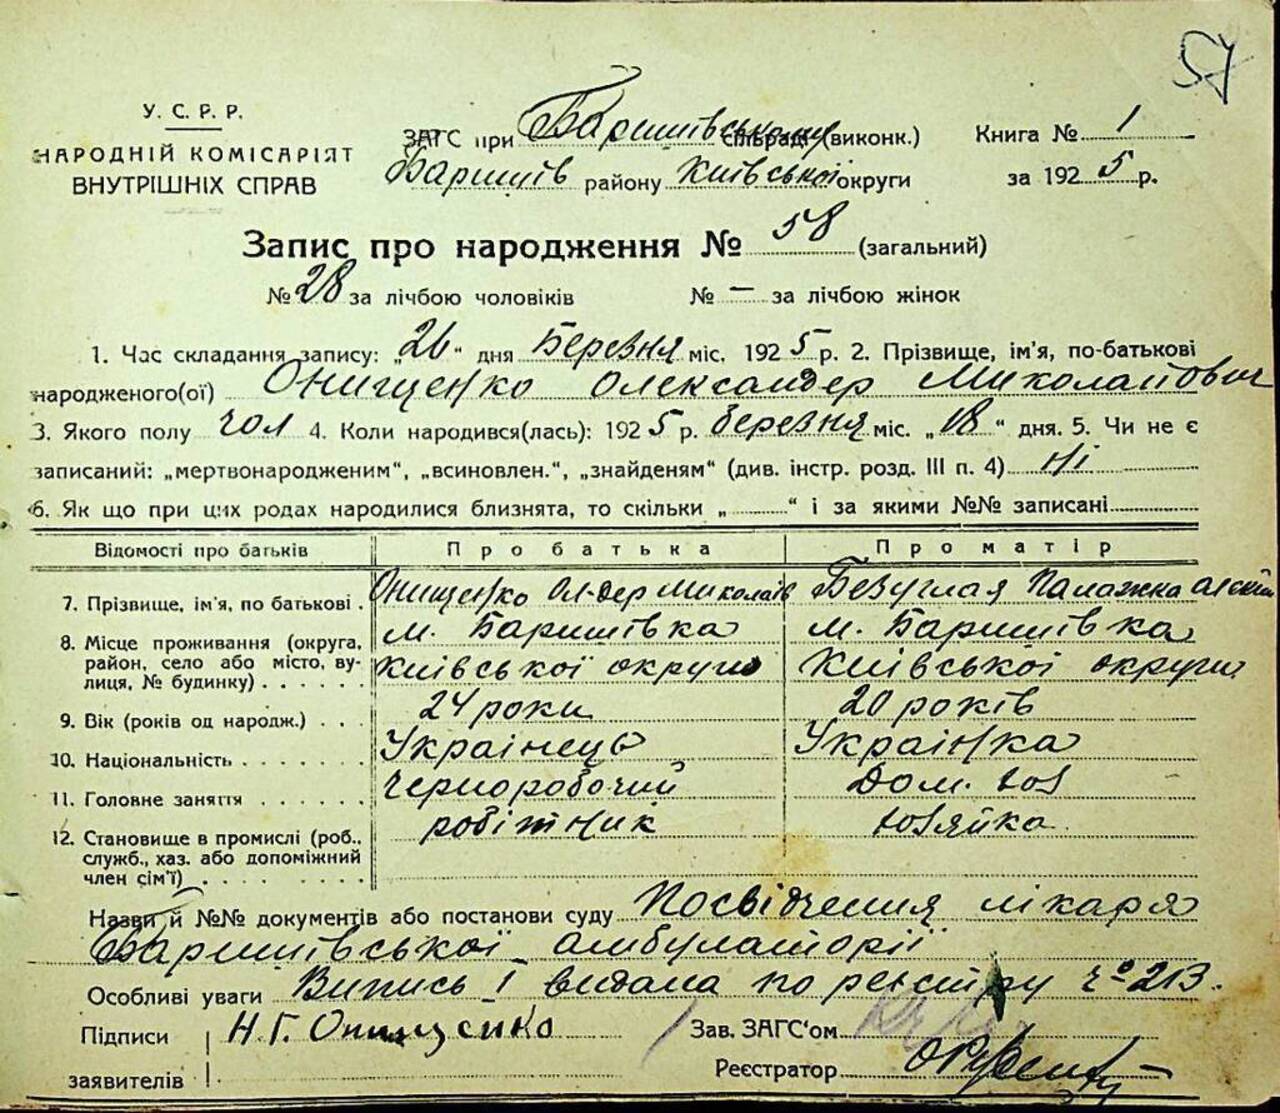 57
У. С. Р. Р.
НАРОДНІЙ КОМІСАРІЯТ
ВНУТРІШНІХ СПРАВ
ЗАГС при Баришівському сільраді (виконк.)
Баришів району Київської округи
Книга № 1
за 1925 р.
Запис про народження № 58 (загальний)
№ 28 за лічбою чоловіків № — за лічбою жінок
1. Час складання запису: „26“ дня Березня міс. 1925 р. 2. Прізвище, ім'я, по-батькові
народженого(ої) Онищенко Олександер Миколайович
3. Якого полу чол 4. Коли народився(лась): 1925 р. березня міс. „18“ дня. 5. Чи не є
записаний: „мертвонародженим“, „всиновлен.“, „знайденям“ (див. інстр. розд. III п. 4) Ні
6. Як що при цих родах народилися близнята, то скільки „ “ і за якими №№ записані
Відомості про батьків Про батька Про матір
7. Прізвище, ім'я, по батькові . Онищенко Ол-дер Миколаїв Безуглая Палажка
8. Місце проживання (округа, м. Баришівка м. Баришівка
район, село або місто, ву- Київської округи Київської округи
лиця, № будинку) . . . . . .
9. Вік (років од народж.) . . . 24 роки 20 років
10. Національність . . . . . . . Українець Українка
11. Головне заняття . . . . . . Чернорабочий Дом. хоз
12. Становище в промислі (роб., робітник хозяйка
служб., хаз. або допоміжний
член сім'ї) . . . . . . . .
Назви й №№ документів або постанови суду Посвідчення лікаря
Баришівської амбулаторії
Особливі уваги Випись 1 видана по реєстру № 213.
Підписи Н. Г. Онищенко Зав. ЗАГС'ом
заявителів Реєстратор